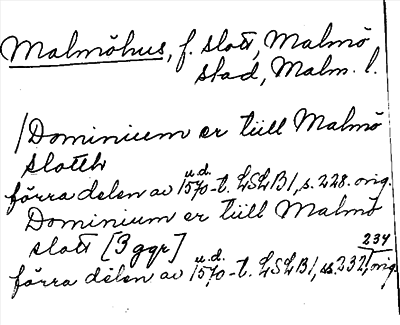 Malmöhus, f. slott, Malmö
stad, Malm. l.
/Dominium er tiill Malmö
slotth
förra delen av u.d. 1570-t. LSLB1, s. 228. orig.
Dominium er tiill Malmö
slott [3 ggr]
förra delen av u.d. 1570-t. LSLB1, ss. 232, 234 orig.